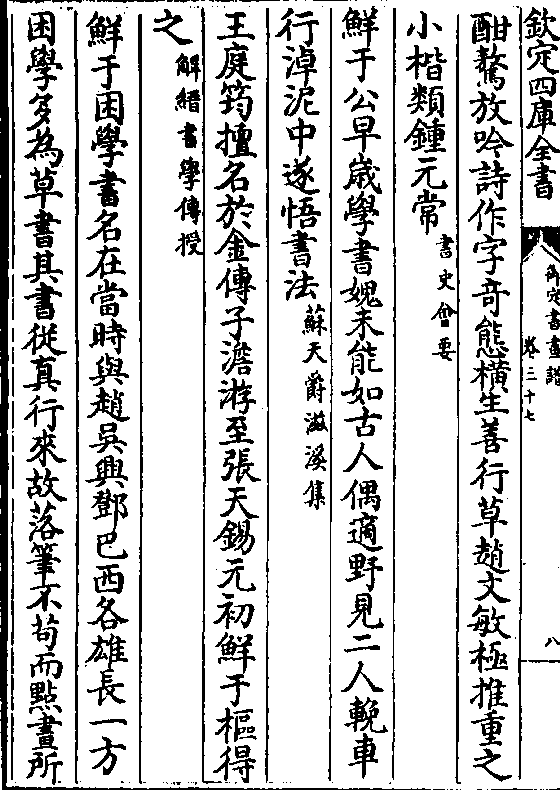 欽定四庫全書
御定書畫譜
卷三十七
八
酣驁放吟詩作字奇態橫生善行草趙文敏極推重之
小楷類鍾元常書史會要
鮮于公早歲學書媿未能如古人偶適野見二人輓車
行淖泥中遂悟書法蘇天爵滋溪集
王庭筠擅名於金傳子澹游至張天錫元初鮮于樞得
之解縉書學傳授
鮮于困學書名在當時與趙吳興鄧巴西各雄長一方
困學多為草書其書從真行來故落筆不苟而點畫所